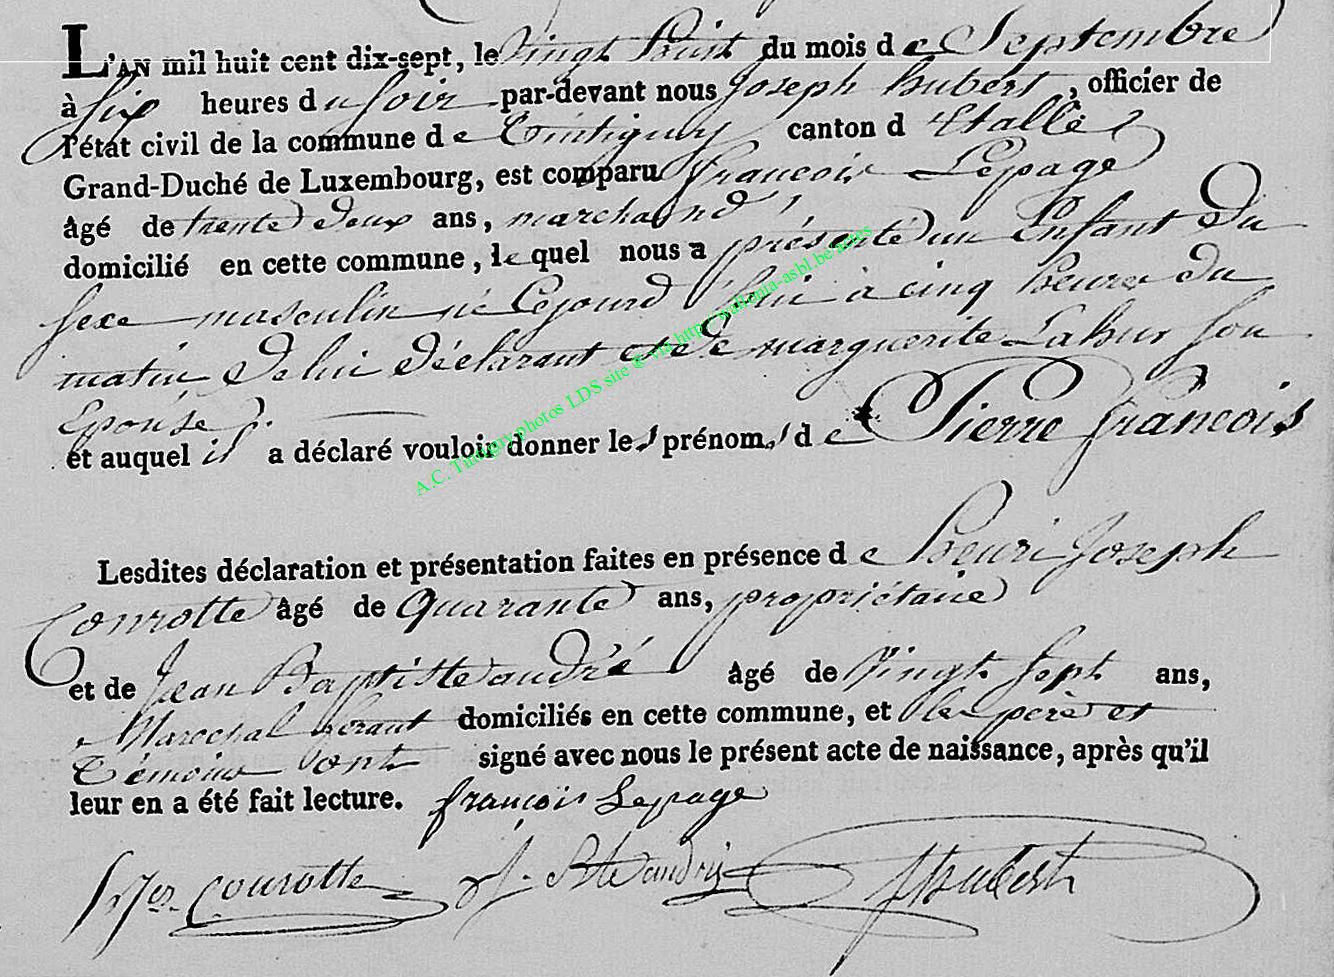 L'AN mil huit cent dix-sept, le vingt huit du mois de Septembre
à six heures du soir par-devant nous Joseph hubert, officier de
l'état civil de la commune de Tintigny canton d'Etalle
Grand-Duché de Luxembourg, est comparu françois Lepage
âgé de trente deux ans, marchand,
domicilié en cette commune, lequel nous a présenté un Enfant du
sexe masculin né Cejourd'hui à cinq heures du
matin De lui Déclarant et de marguerite Lahur son
Epouse.
et auquel il a déclaré vouloir donner les prénoms de Pierre françois
Lesdites déclaration et présentation faites en présence de henri Joseph
Courotte âgé de Quarante ans, propriétaire
et de Jean Baptiste andré âgé de Vingt Sept ans,
Marechal ferant domiciliés en cette commune, et les père et
Témoins ont signé avec nous le présent acte de naissance, après qu'il
leur en a été fait lecture. françois Lepage
Courotte J. Bte andré JHubert
A.C. Tintigny photos LDS site @ via http://wallonia-asbl.be/actes